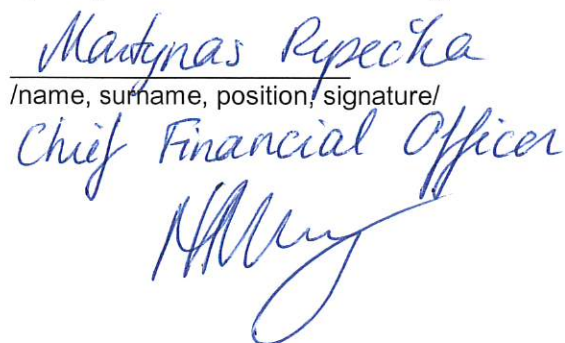 Martynas Repečka
/name, surname, position, signature/
Chief Financial Officer